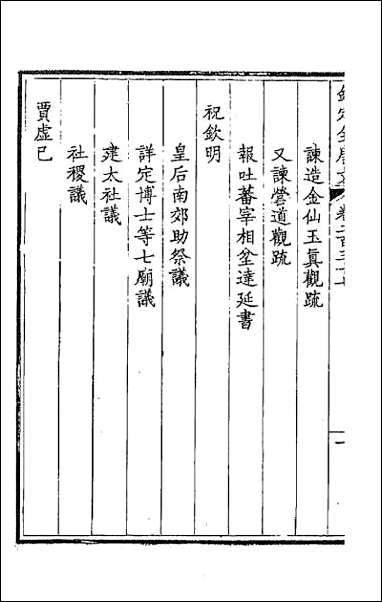 諫造金仙玉真觀疏
又諫營道觀疏
報吐蕃宰相坌達延書
祝欽明
皇后南郊助祭議
詳定博士等七廟議
建太社議
社稷議
賈虛已